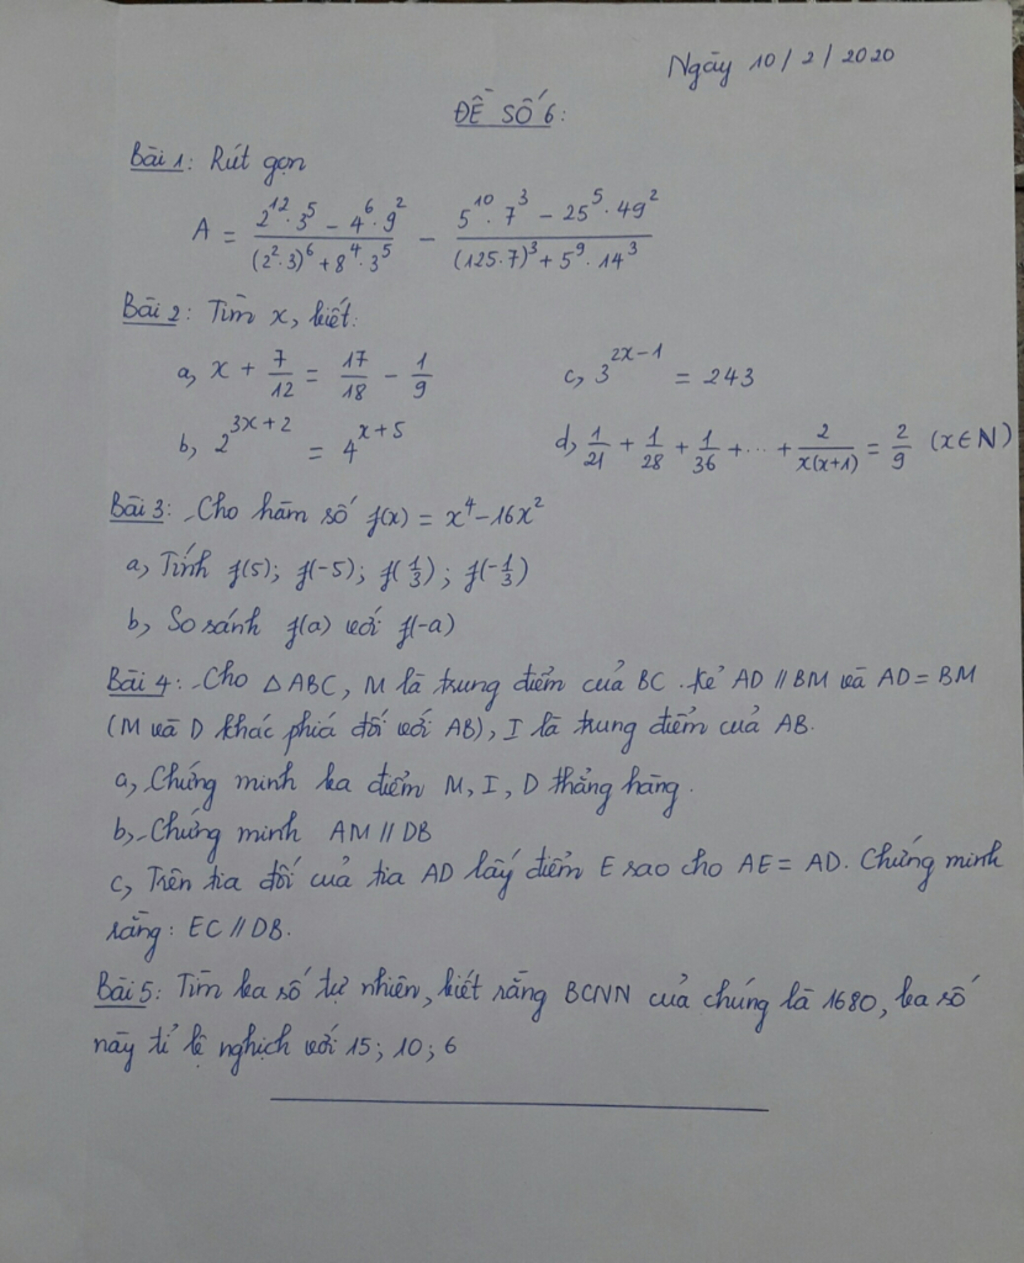 Ngày 10/2/2020
ĐỀ SỐ 6:
Bài 1: Rút gọn
A = (2^12 . 3^5 - 4^6 . 9^2) / ((2^2 . 3)^6 + 8^4 . 3^5) - (5^10 . 7^3 - 25^5 . 49^2) / ((125 . 7)^3 + 5^9 . 14^3)
Bài 2: Tìm x, biết:
a, x + 7/12 = 17/18 - 1/9
c, 3^(2x-1) = 243
b, 2^(3x+2) = 4^(x+5)
d, 1/21 + 1/28 + 1/36 + ... + 2/(x(x+1)) = 2/9 (x ∈ N)
Bài 3: Cho hàm số f(x) = x^4 - 16x^2
a, Tính f(5); f(-5); f(1/3); f(-1/3)
b, So sánh f(a) với f(-a)
Bài 4: Cho △ABC, M là trung điểm của BC. Kẻ AD // BM và AD = BM
(M và D khác phía đối với AB), I là trung điểm của AB.
a, Chứng minh ba điểm M, I, D thẳng hàng.
b, Chứng minh AM // DB
c, Trên tia đối của tia AD lấy điểm E sao cho AE = AD. Chứng minh
rằng: EC // DB.
Bài 5: Tìm ba số tự nhiên, biết rằng BCNN của chúng là 1680, ba số
này tỉ lệ nghịch với 15; 10; 6